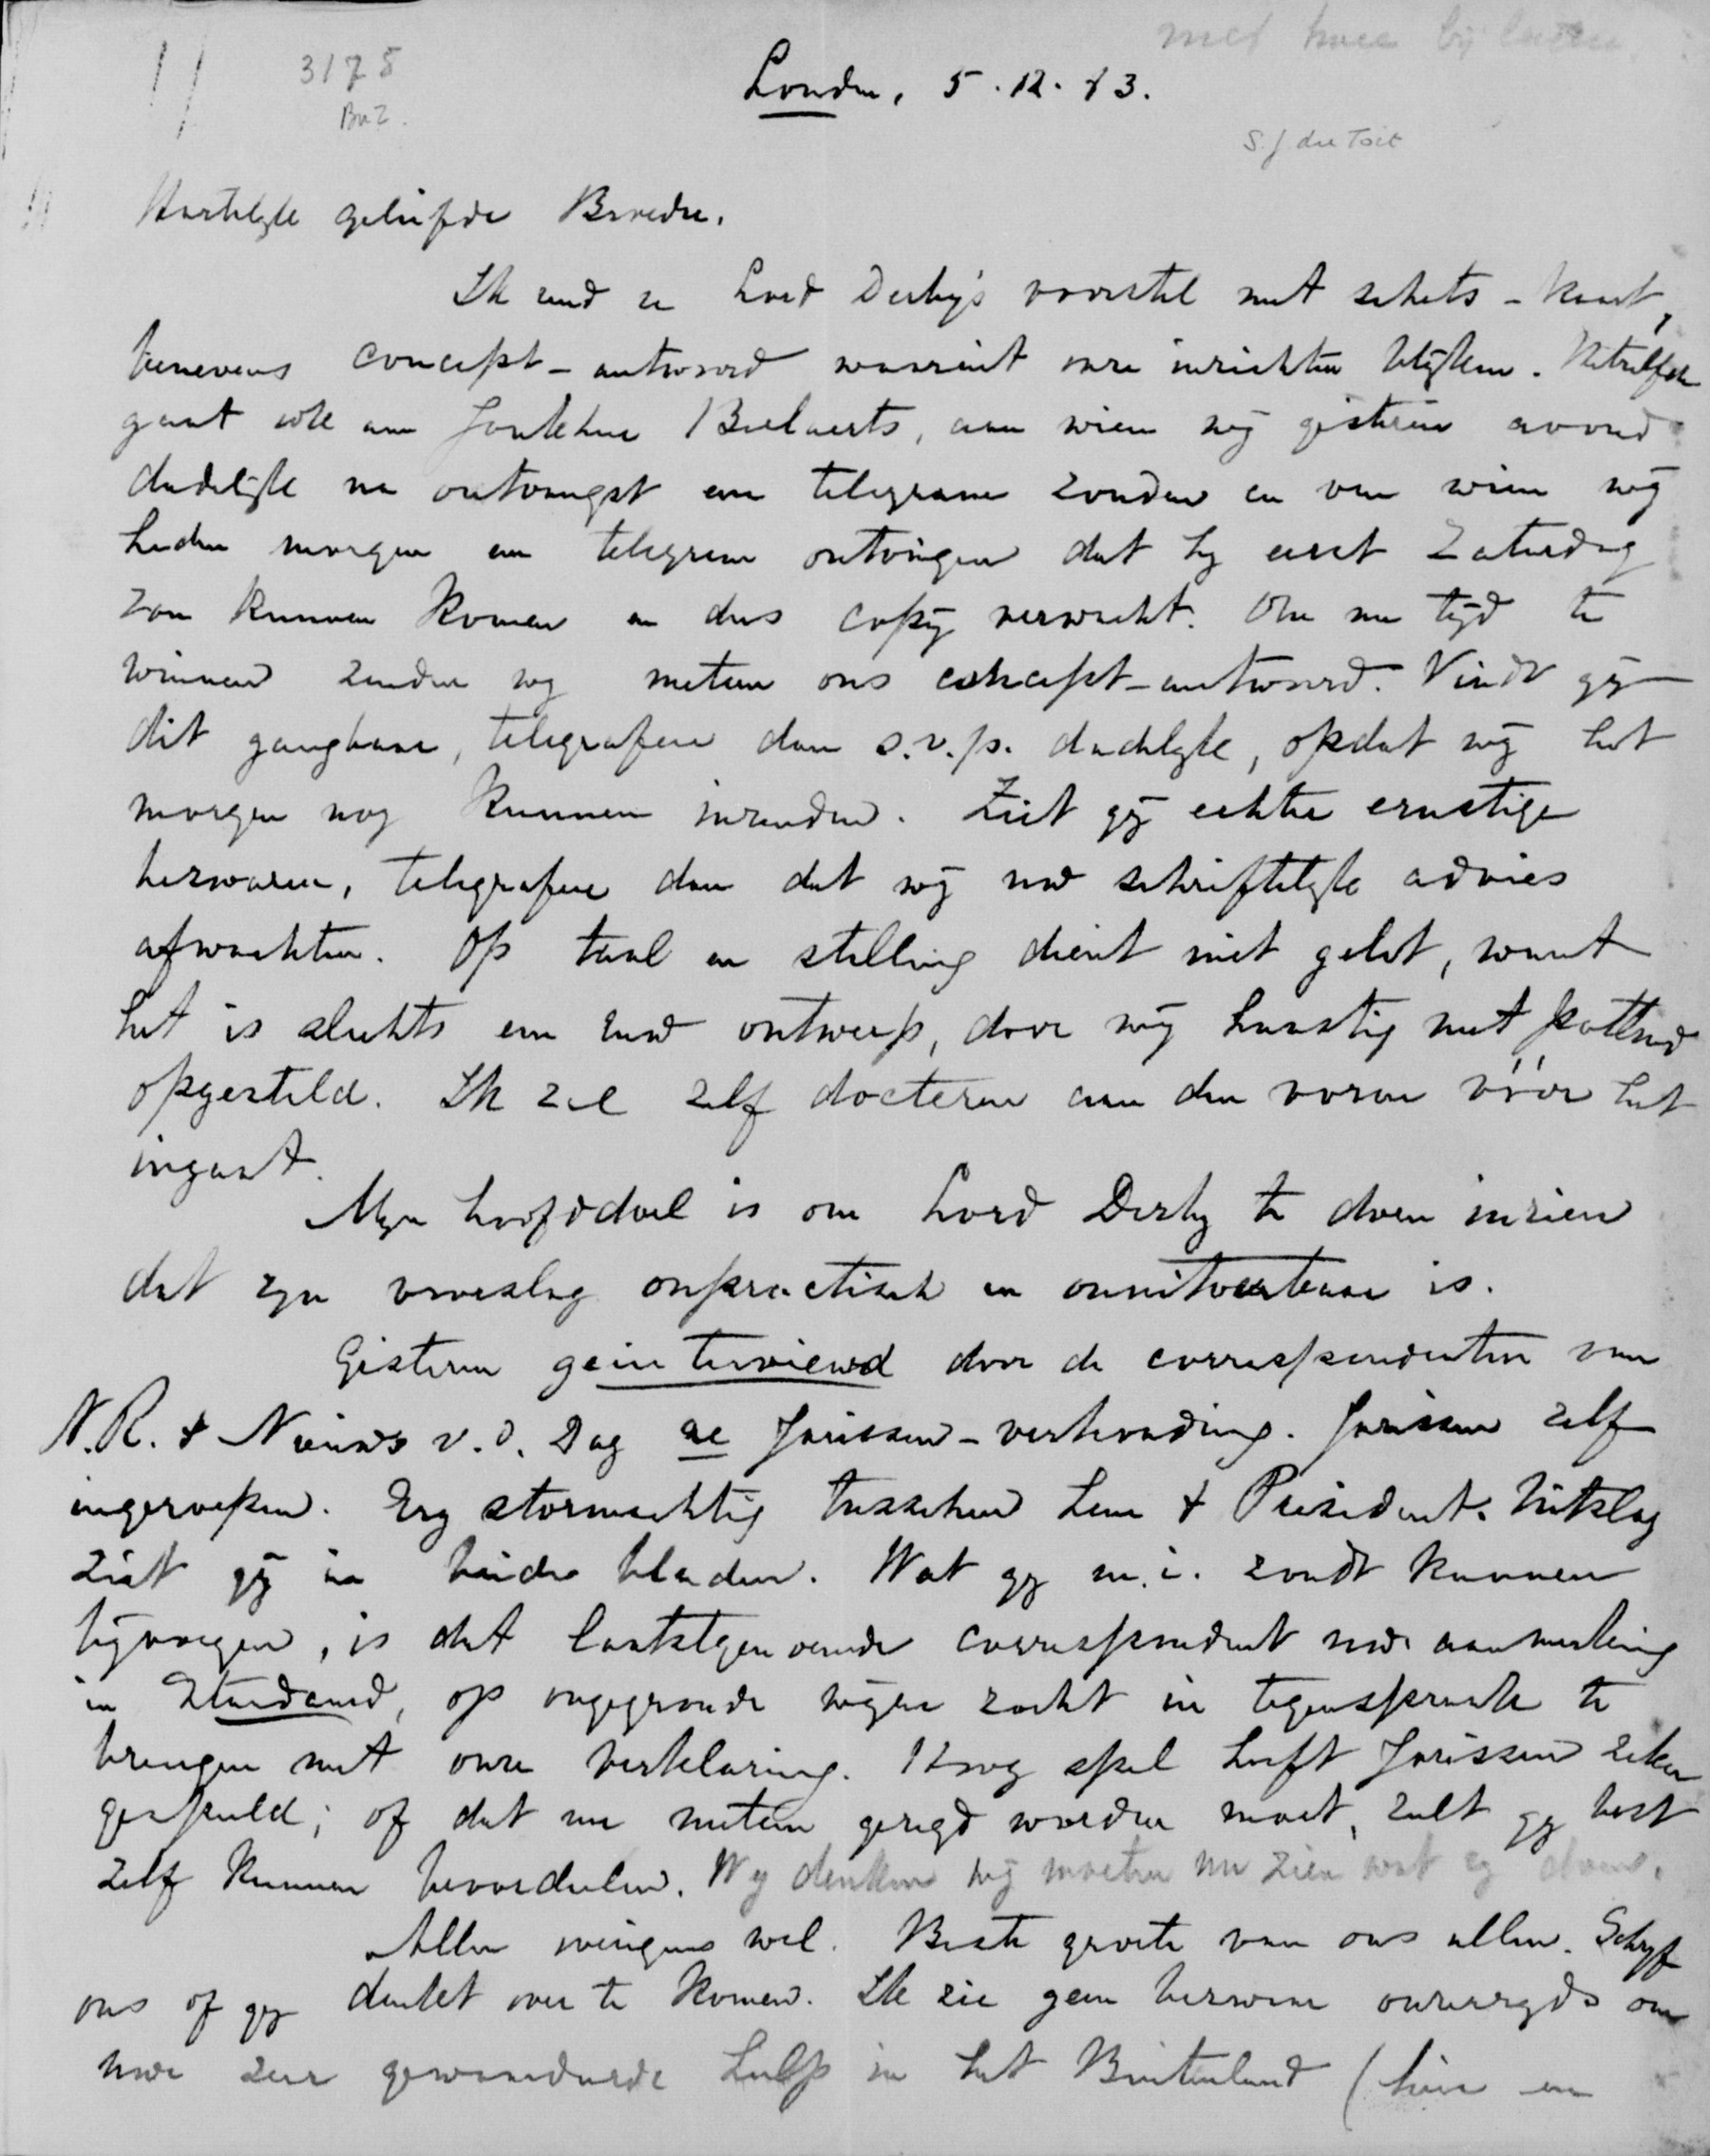 met twee bijlagen
3175
BuZ.
London, 5.12.83.
S. J. du Toit
Hartelyk geliefde Broeder,
Ik zend u Lord Derby's voorstel met schets-kaart,
benevens concept-antwoord waaruit onze inzichten blijken. Hetzelfde
gaat ook aan Jonkheer Beelaerts, aan wien wij gisteren avond
dadelijk na ontvangst een telegram zonden en van wien wij
heden morgen een telegram ontvingen dat hy eerst Zaturdag
zou kunnen komen en dus copij verwacht. Om nu tijd te
winnen zenden wy meteen ons concept-antwoord. Vindt gij
dit gangbaar, telegrafeer dan s.v.p. dadelyk, opdat wij het
morgen nog kunnen inzenden. Ziet gij echter ernstige
bezwaren, telegrafeer dan dat wij uw schriftelyk advies
afwachten. Op taal en stelling dient niet gelet, want
het is slechts een ruw ontwerp, door mij haastig met potlood
opgesteld. Ik zal zelf docteren aan den vorm vóór het
ingaat.
Myn hoofddoel is om Lord Derby te doen inzien
dat zyn voorslag onpractisch en onuitvoerbaar is.
Gisteren geinterviewd door de correspondenten van
N.R. & Nieuws v.d. Dag re Jorissen-verhouding. Jorissen zelf
ingeroepen. Erg stormachtig tusschen hem & President. Uitslag
ziet gij in beide bladen. Wat gy m.i. zoudt kunnen
bijvoegen, is dat laatstgenoemde correspondent uwe aanmerking
in Standaard, op ongegronde wijze zocht in tegenspraak te
brengen met onze verklaring. Hoog spel heeft Jorissen zeker
gespeeld; of dat nu meteen gezegd worden moet, zult gy best
zelf kunnen beoordeelen. Wy denken wij moeten nu zien wat zy doen.
Allen overigens wel. Beste groete van ons allen. Schryf
ons of gy denket over te komen. Ik zie geen bezwaar onzerzyds om
uwe zeer gewaardeerde hulp in het Buitenland (hier en